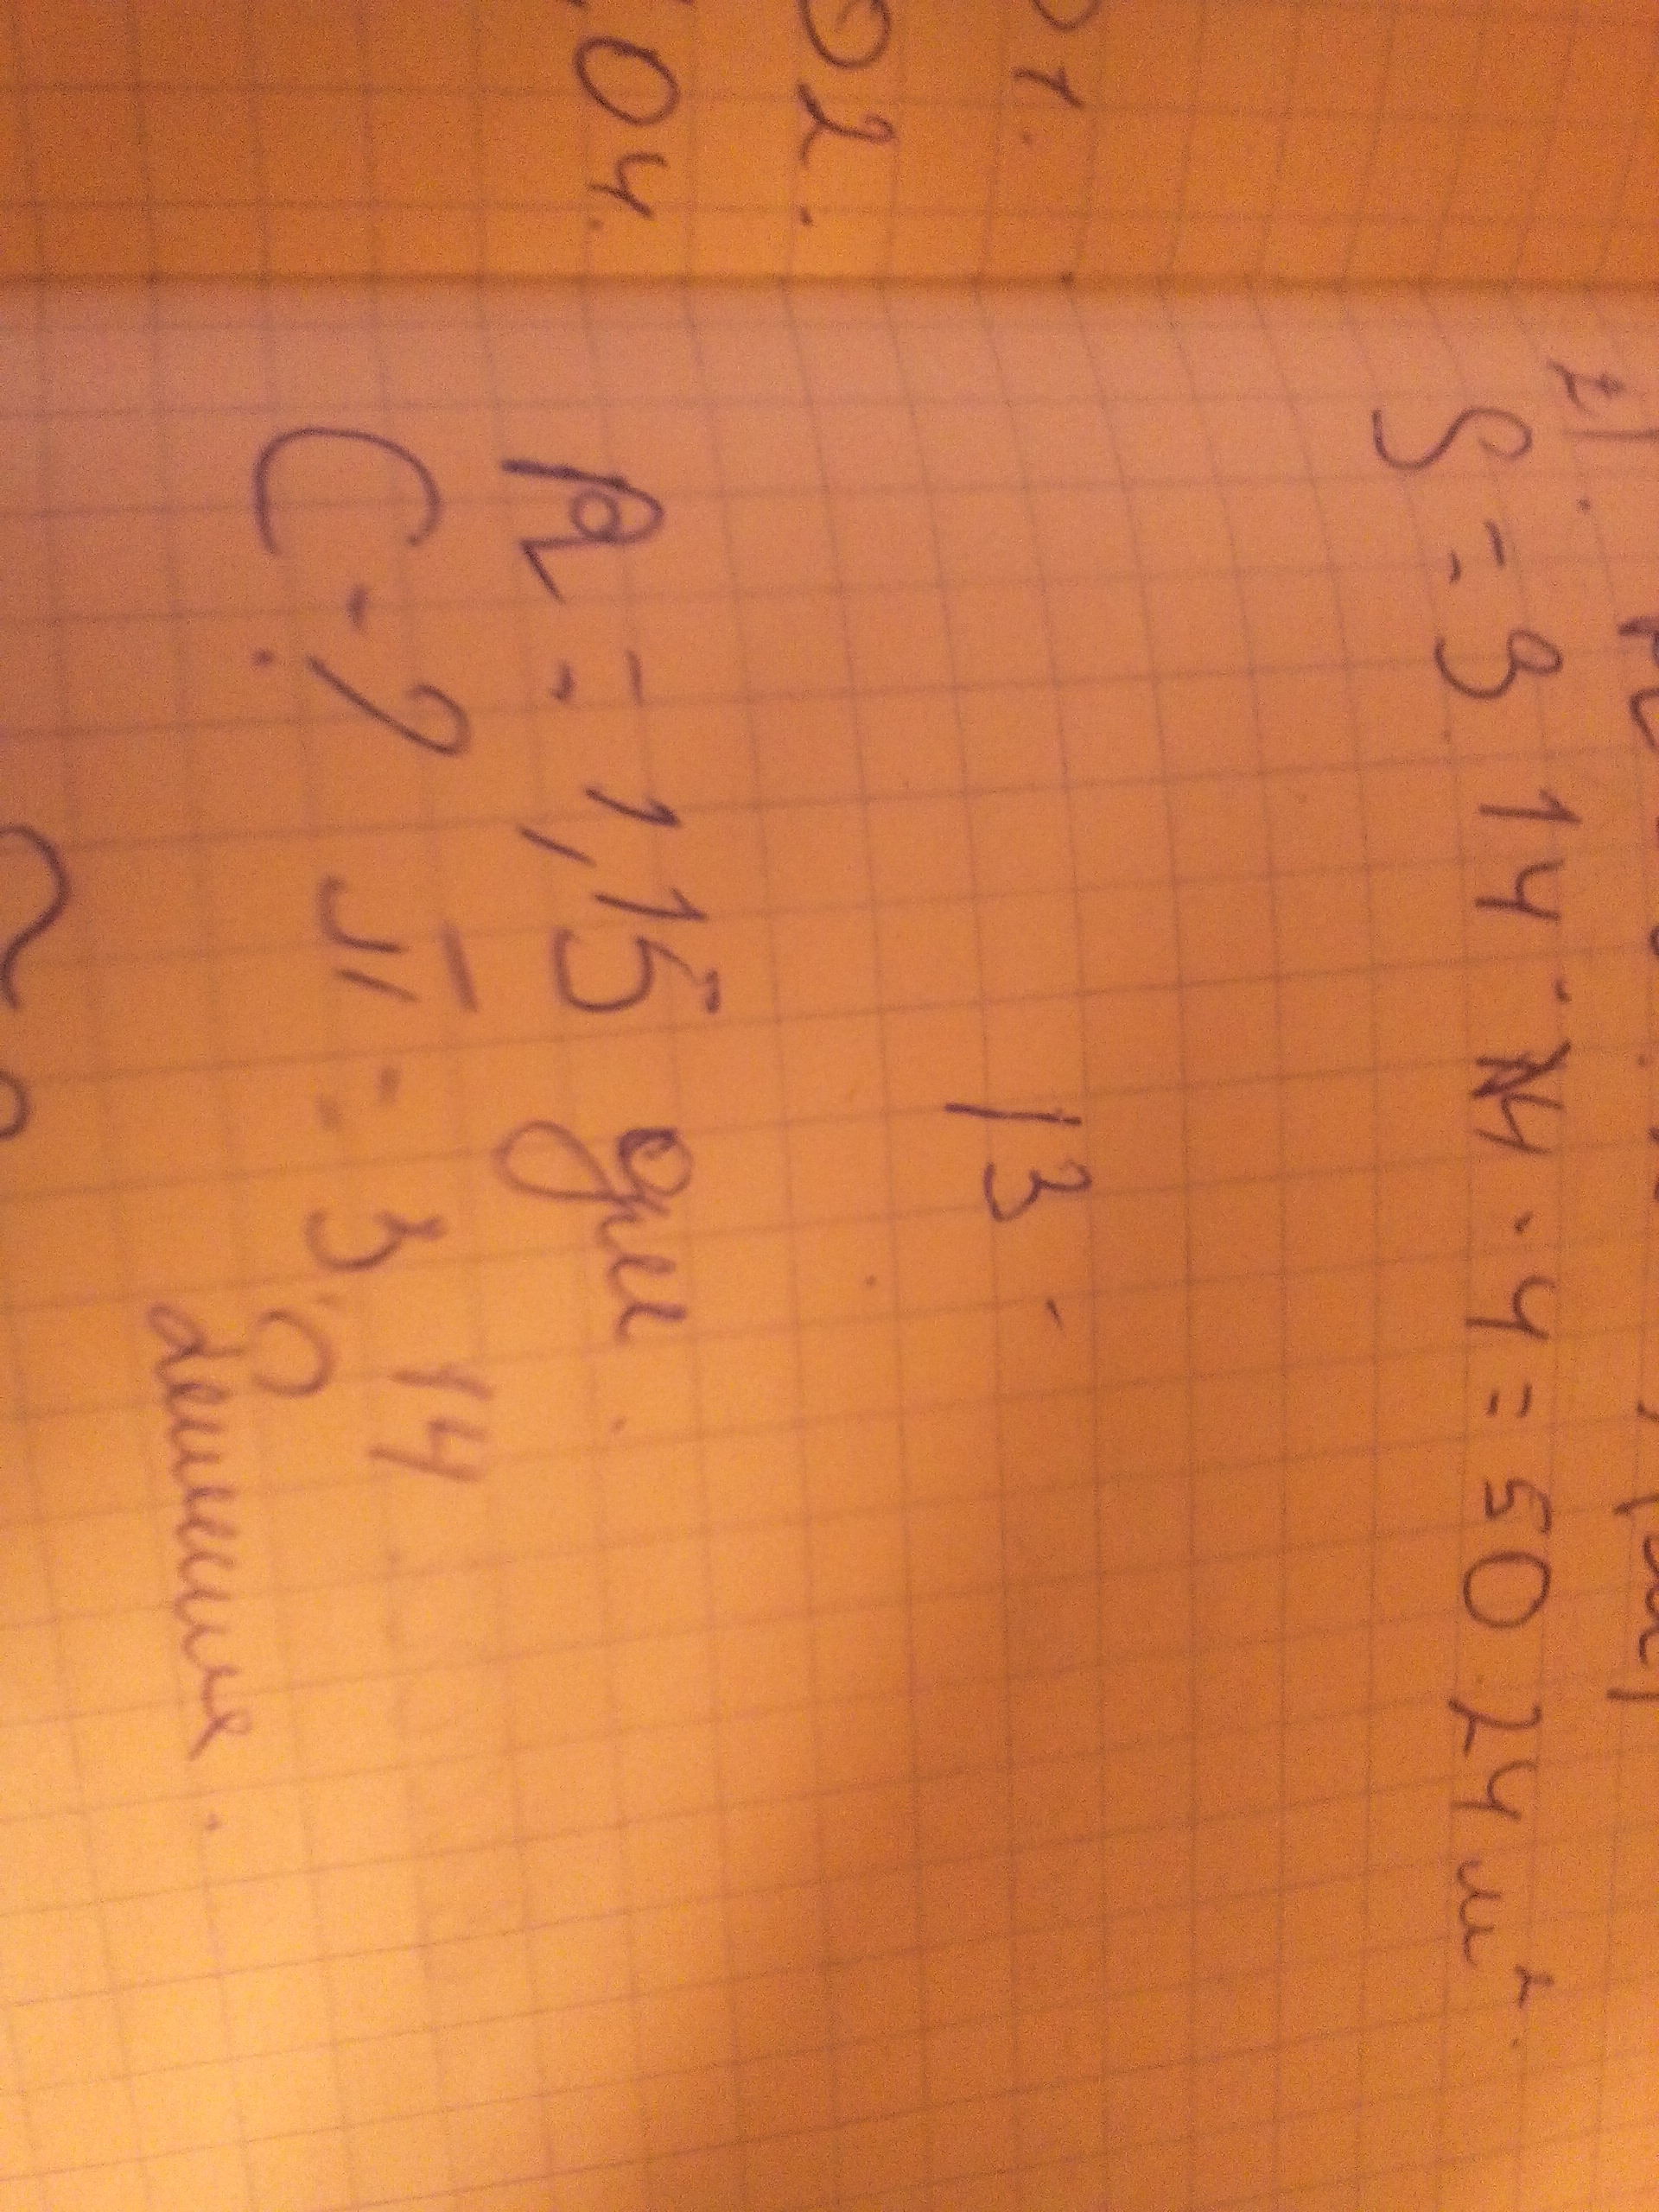 01.
02.
04.
21.
S = 3 14 · 4 · 4 = 50 24 м².
13
R = 1,15 дм.
C - ? π = 3,14
Решение.